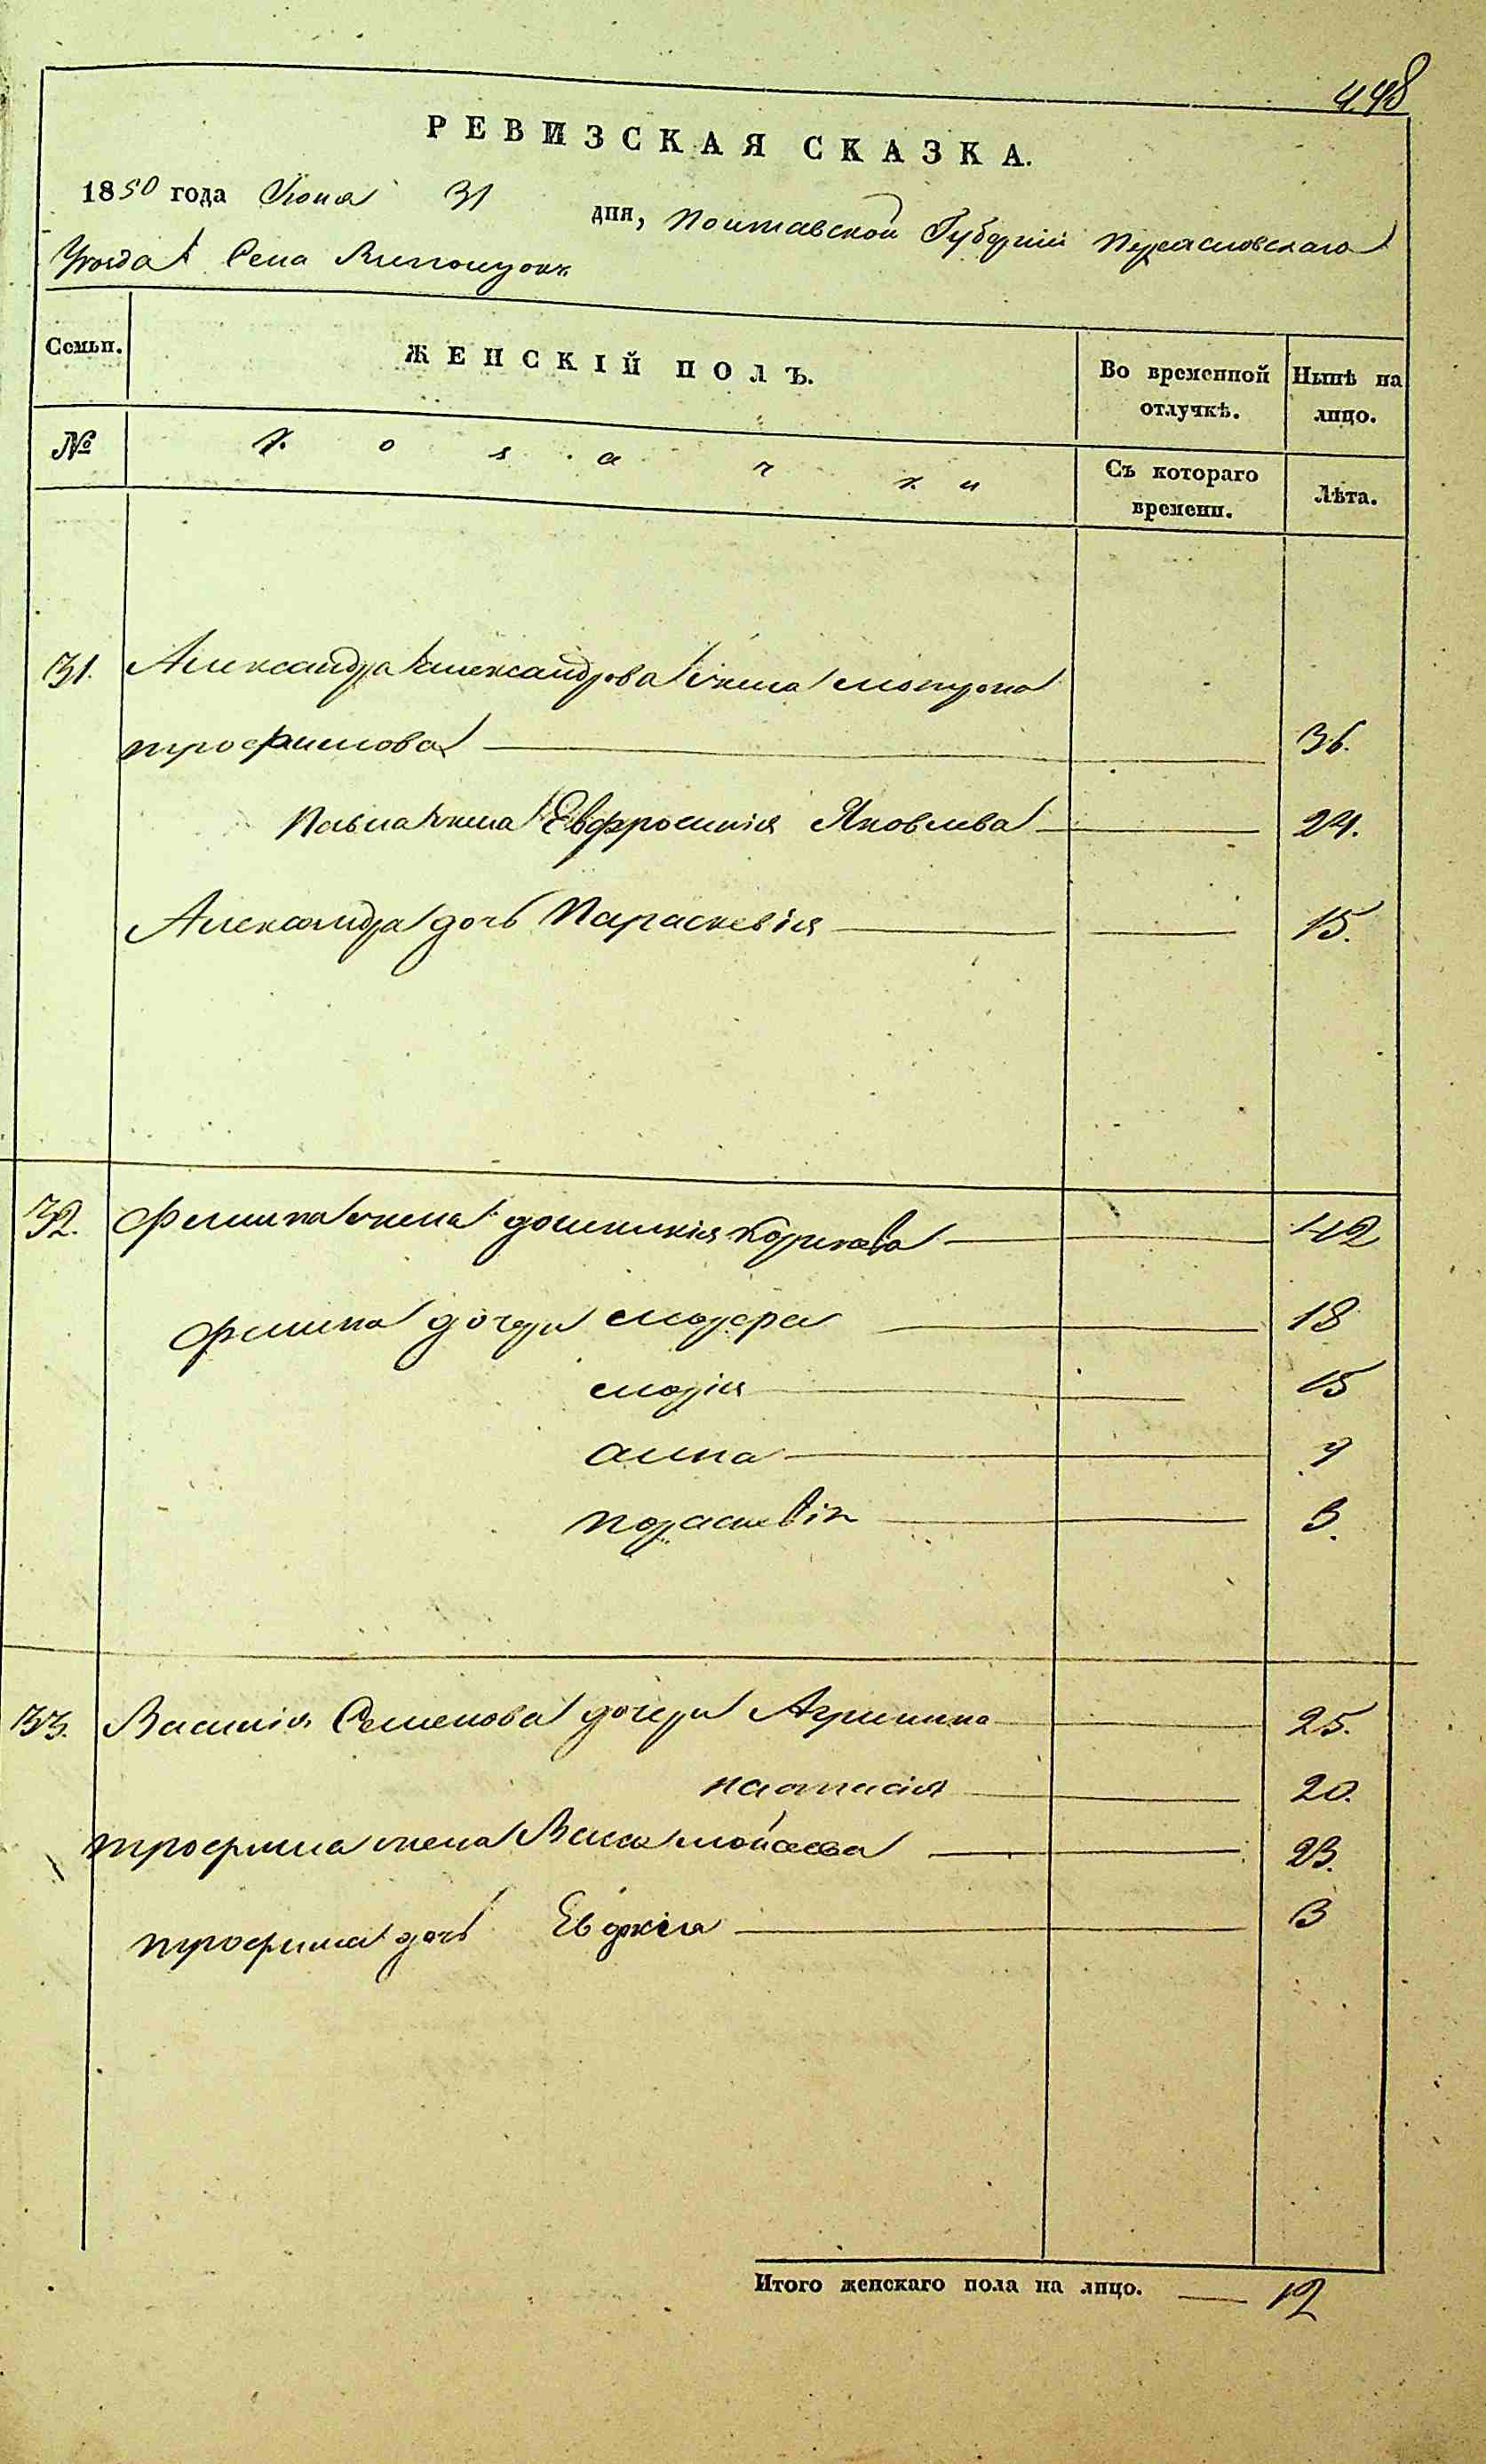 448
РЕВИЗСКАЯ СКАЗКА.
1850 года Июня 31 дня, Полтавской Губерніи Переясловскаго
Уезда Села
Семьи. ЖЕНСКІЙ ПОЛЪ. Во временной отлучкѣ. Нынѣ на лицо.
№ Козачки Съ котораго времени. Лѣта.
31. Александра Александрова жена мотрона
трофимова 36.
Павла жена Евфросинія Яковлева 24.
Александра дочь Параскевія 15.
32. Филипа жена домникія Карпова 42
Филипа дочери 18
марія 15
анна 7
параскевія 3.
33. Василія Семенова дочери Агрипина 25.
настасія 20.
трофима жена Васса мойсеева 23.
трофима дочь Евдокія 3
Итого женскаго пола на лицо. 12